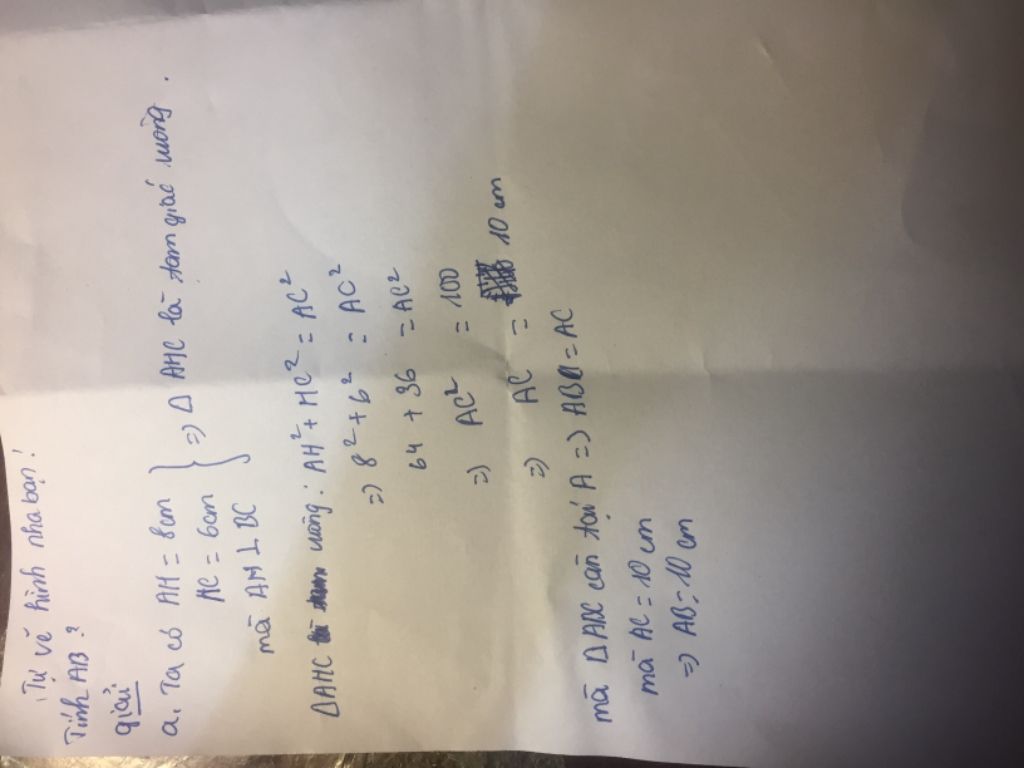 Tự vẽ hình nha bạn!
Tính AB?
giải
a, Ta có AH = 8cm
HC = 6cm } => Δ AHC là tam giác vuông.
mà AH ⊥ BC
ΔAHC vuông: AH² + HC² = AC²
=> 8² + 6² = AC²
64 + 36 = AC²
=> AC² = 100
=> AC = 10 cm
mà Δ ABC cân tại A => AB = AC
mà AC = 10 cm
=> AB = 10 cm